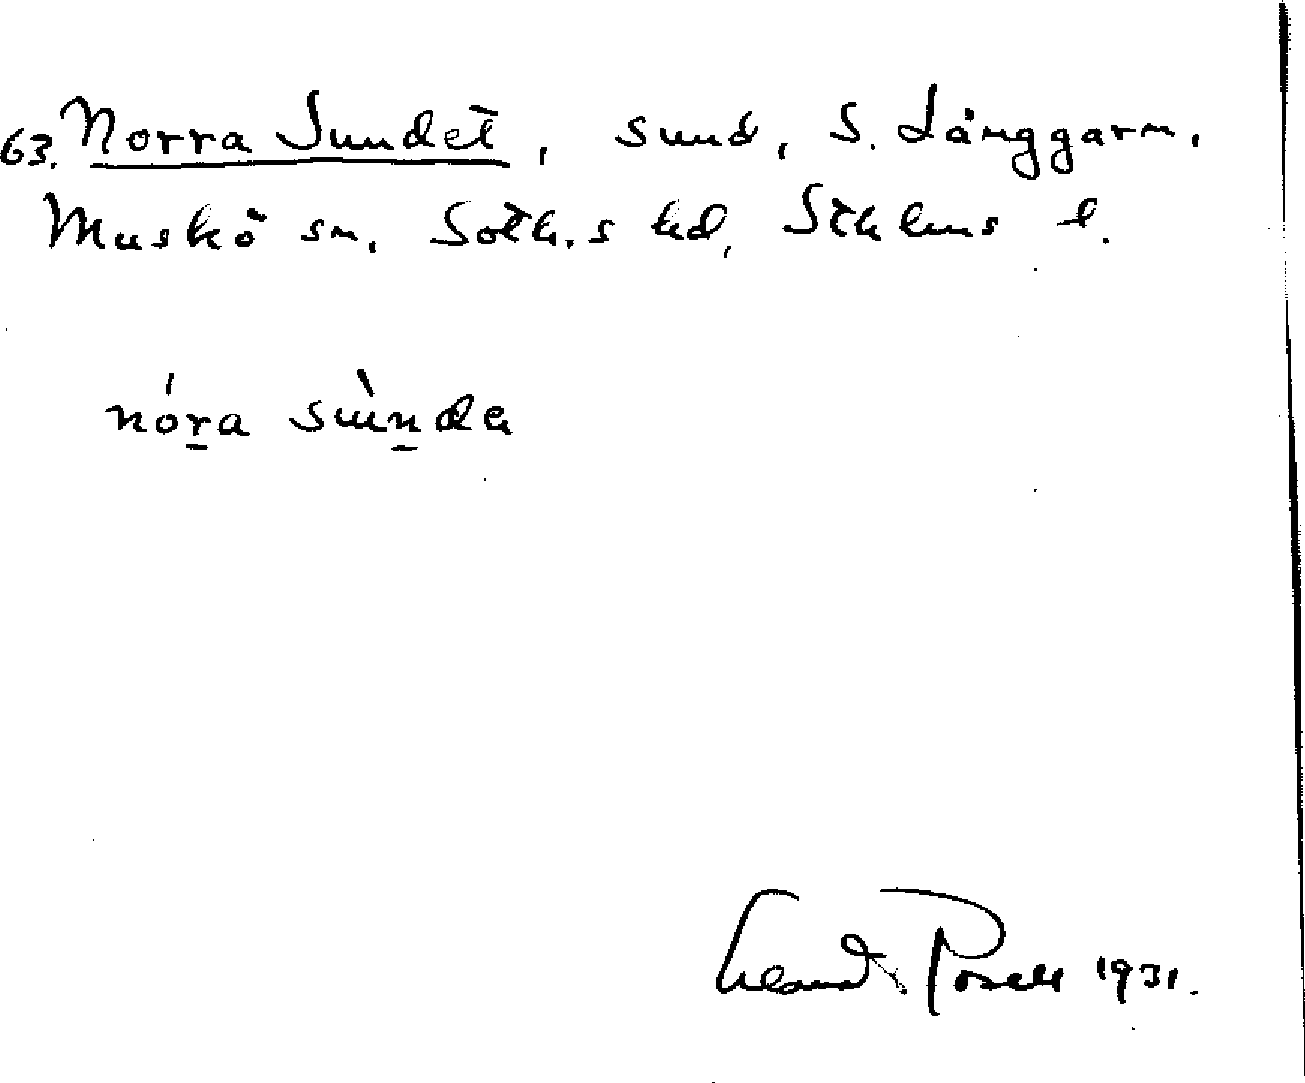 63. Norra Sundet, sund, S. Långgarn,
Muskö sn, Soth.s hd, Sthlms l.
nóra sùnda
1931.